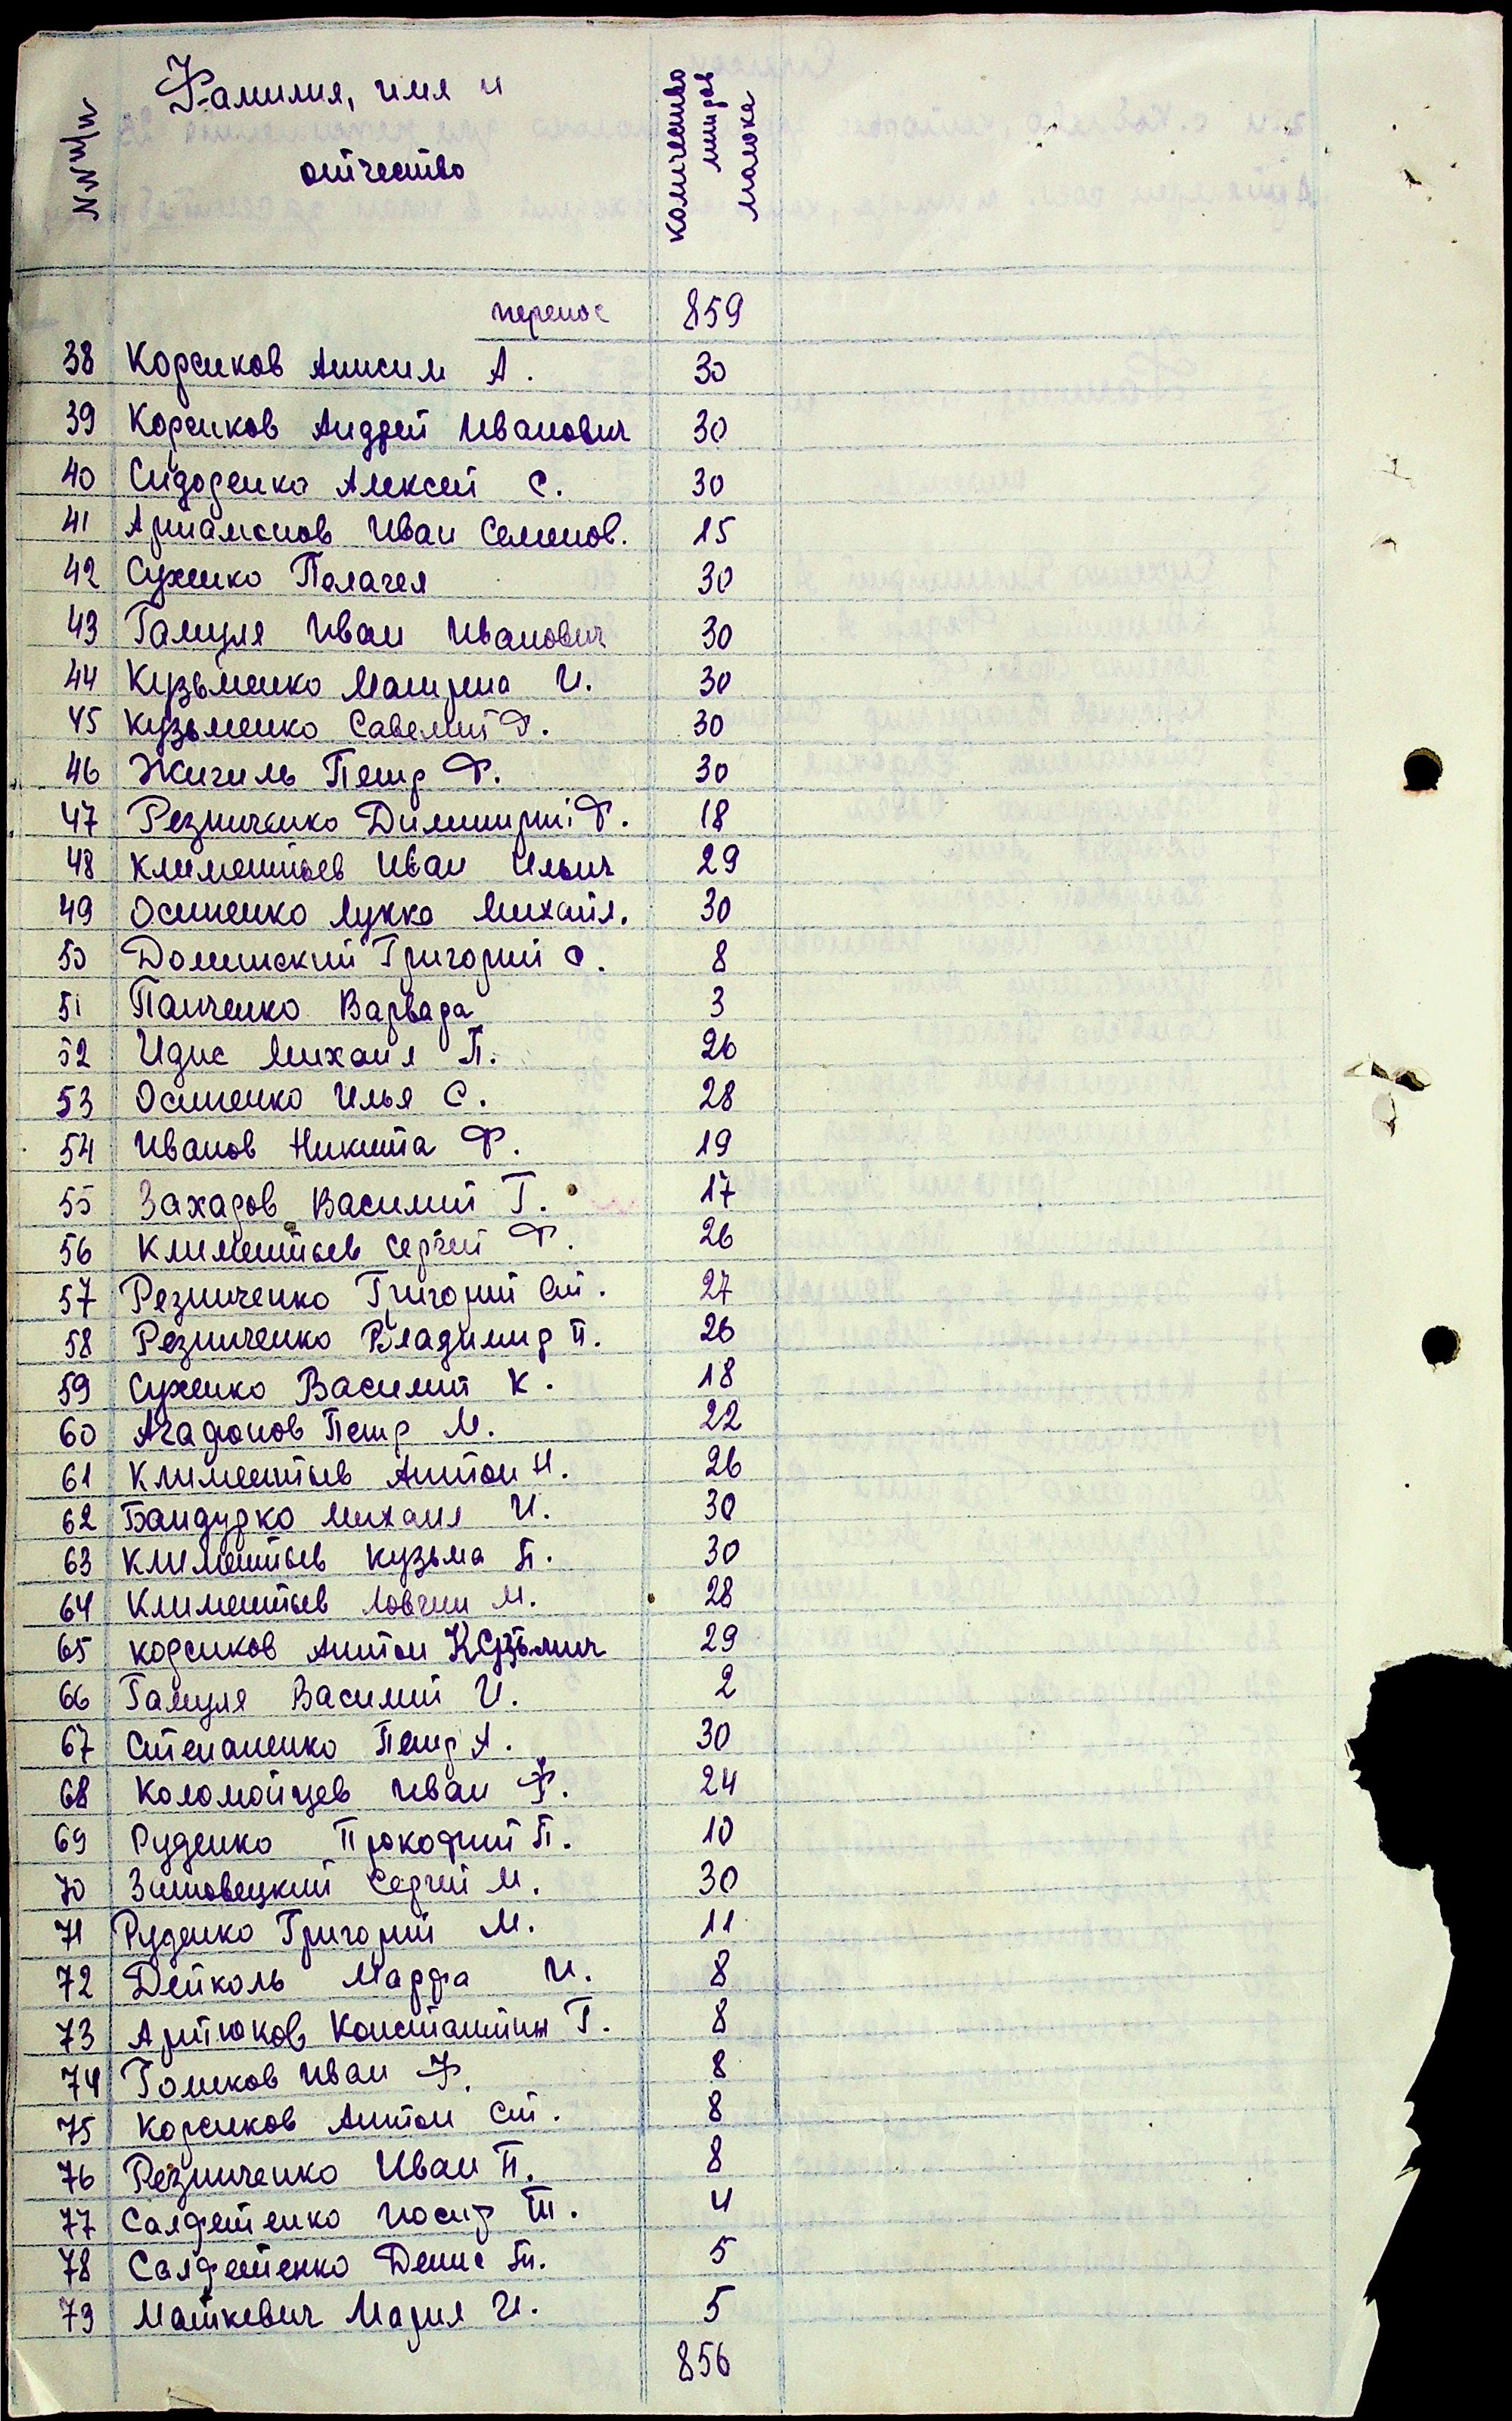 NN п/п
Фамилия, имя и
отчество
количество
литров
молока
перенос 859
38 Корсиков Анисим А. 30
39 Корсиков Андрей Иванович 30
40 Сидоренко Алексей С. 30
41 Артамонов Иван Семенов. 15
42 Сухенко Пелагея 30
43 Гамуля Иван Иванович 30
44 Кузьменко Матрена И. 30
45 Кузьменко Савелий Ф. 30
46 Жигиль Петр Ф. 30
47 Резниченко Димитрий Ф. 18
48 Климентьев Иван Ильич 29
49 Осипенко Лукка Михайл. 30
50 Долинский Григорий С. 8
51 Панченко Варвара 3
52 Идис Михаил П. 26
53 Осипенко Илья С. 28
54 Иванов Никита Ф. 19
55 Захаров Василий Г. 17
56 Климентьев Сергей Ф. 26
57 Резниченко Григорий Ст. 27
58 Резниченко Владимир П. 26
59 Сухенко Василий К. 18
60 Агафонов Петр М. 22
61 Климентьев Антон Н. 26
62 Бандурко Михаил И. 30
63 Климентьев Кузьма П. 30
64 Климентьев Ловгин М. 28
65 Корсиков Антон Кузьмич 29
66 Гамуля Василий И. 2
67 Степаненко Петр А. 30
68 Коломойцев Иван Ф. 24
69 Руденко Прокофий П. 10
70 Зиновецкий Сергей М. 30
71 Руденко Григорий М. 11
72 Дейколь Марфа И. 8
73 Артюков Константин Г. 8
74 Голиков Иван Ф. 8
75 Корсиков Антон Ст. 8
76 Резниченко Иван П. 8
77 Салфетенко Иосиф Т. 4
78 Салфетенко Денис Т. 5
79 Маткевич Мария И. 5
856